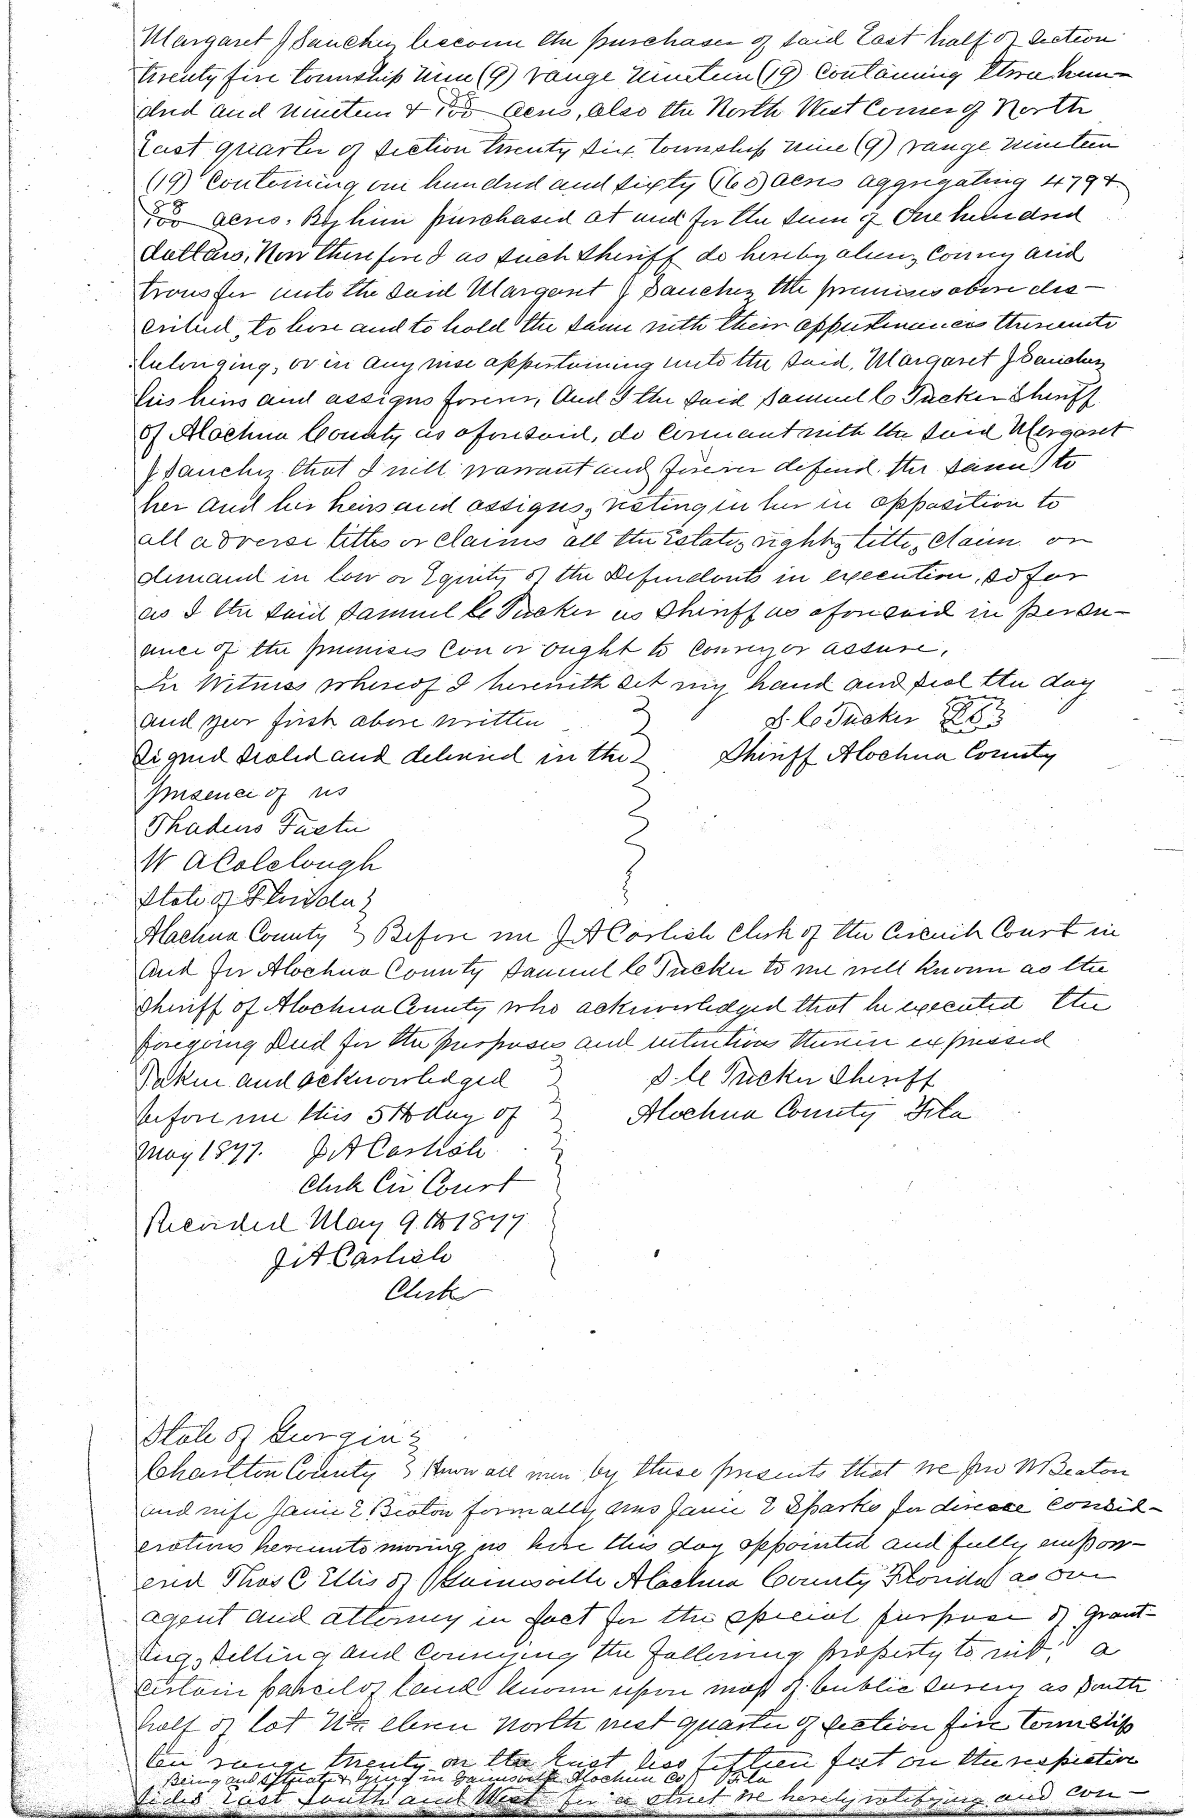 Margaret J Sanchez become the purchaser of said East half of Section
twenty five township nine (9) range nineteen (19) containing three hun-
dred and nineteen & 58/100 acres, also the North West Corner of North
East quarter of Section twenty six township nine (9) range nineteen
(19) containing one hundred and sixty (160) acres aggregating 479 &
58/100 acres. By him purchased at and for the sum of One hundred
dollars, Now therefore I as such Sheriff do hereby alien, convey and
transfer unto the said Margaret J Sanchez the premises above des-
cribed, to have and to hold the same with their appurtenances thereunto
belonging, or in any wise appertaining unto the said, Margaret J Sanchez
his heirs and assigns forever, And I the said Samuel C Tucker Sheriff
of Alachua County as aforesaid, do covenant with the said Margaret
J Sanchez that I will warrant and forever defend the same to
her and her heirs and assigns, vesting in her in opposition to
all adverse titles or claims all the Estate, right, title, claim or
demand in law or Equity of the Defendants in execution, so far
as I the said Samuel C Tucker as Sheriff as aforesaid in persu-
ance of the premises can or ought to convey or assure,
In Witness whereof I herewith set my hand and seal the day
and year first above written S. C Tucker
Signed sealed and delivered in the Sheriff Alachua County
presence of us
Thadeus
W A Colclough
State of Florida }
Alachua County } Before me J A Carlisle Clerk of the Circuit Court in
and for Alachua County Samuel C Tucker to me well known as the
Sheriff of Alachua County who acknowledged that he executed the
foregoing Deed for the purposes and intentions therein expressed
Taken and acknowledged } S. C Tucker Sheriff
before me this 5th day of } Alachua County Fla
May 1877. J A Carlisle
Clerk Cir Court
Recorded May 9th 1877
J A Carlisle
Clerk
State of Georgia }
Charlton County } Know all men by these presents that we Jno W Beaton
and wife Janie E Beaton formally Miss Janie E Sparks for divers consid-
erations hereunto moving us have this day appointed and fully empow-
ered Thos C Ellis of Gainesville Alachua County Florida as our
agent and attorney in fact for the special purpose of grant-
ing, selling and conveying the following property to wit; a
certain parcel of land known upon map of public survey as South
half of lot No. eleven North west quarter of section five township
ten range twenty on the East less fifteen feet on the respective
Being and situate & lying in Gainesville Alachua Co Fla
sides East South and West for a street we hereby ratifying and con-